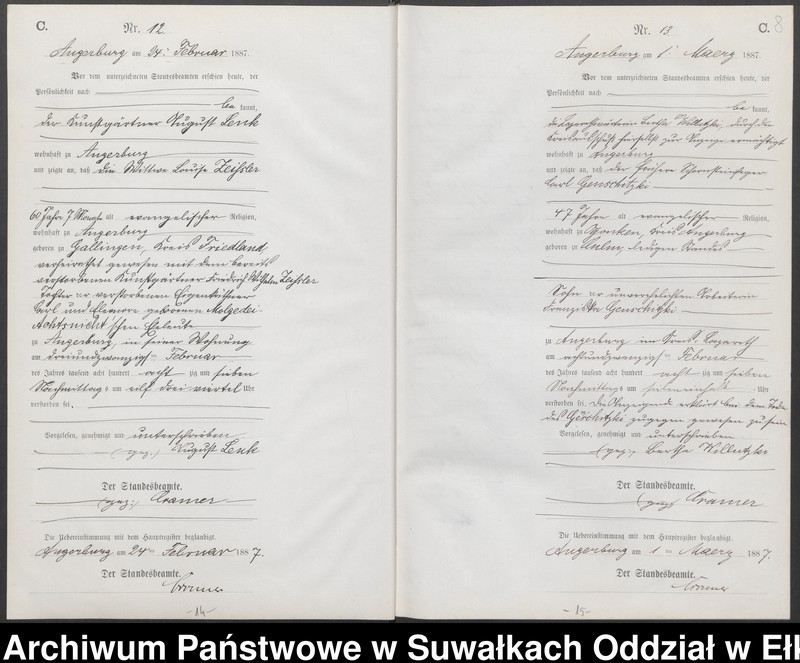 C. Nr. 12.
Angerburg am 24. Februar 1887.
Vor dem unterzeichneten Standesbeamten erschien heute, der
Persönlichkeit nach
be kannt,
der Kunstgärtner August Lenk
wohnhaft zu Angerburg
und zeigte an, daß die Wittwe Louise Zeissler
60 Jahr, 7 Monate alt evangelischer Religion,
wohnhaft zu Angerburg
geboren zu Gallingen, Kreis Friedland,
verheirathet gewesen mit dem bereits
verstorbenen Kunstgärtner Friedrich Zeissler
Tochter der verstorbenen Eigenkäthner
Carl und Eleonore geborenen
Achtsnicht'schen Eheleute
zu Angerburg, in seiner Wohnung
am dreiundzwanzigsten Februar
des Jahres tausend acht hundert acht zig und sieben
Nachmittags um elf drei viertel Uhr
verstorben sei.
Vorgelesen, genehmigt und unterschrieben
(gez.) August Lenk
Der Standesbeamte.
(gez.) Cramer
Die Uebereinstimmung mit dem Hauptregister beglaubigt.
Angerburg am 24ten Februar 1887.
Der Standesbeamte.
Cramer
-14-
Nr. 13. C. 8
Angerburg am 1. Maerz 1887.
Vor dem unterzeichneten Standesbeamten erschien heute, der
Persönlichkeit nach
be kannt,
die Bertha Willutzki, durch den
hierselbst zur Anzeige ermächtigt
wohnhaft zu Angerburg
und zeigte an, daß der frühere Schornsteinfeger
Carl Genschitzki
47 Jahre alt evangelischer Religion,
wohnhaft zu Gonken, Kreis Angerburg
geboren zu Culm, ledigen Standes
Sohn der unverehelichten Arbeiterin
Franziska Genschitzki
zu Angerburg im Kreis-Lazareth
am achtundzwanzigsten Februar
des Jahres tausend acht hundert acht zig und sieben
Nachmittags um Uhr
verstorben sei. Die Anzeigende erklärt bei dem Tode
des zugegen gewesen zu sein
Vorgelesen, genehmigt und unterschrieben
(gez.) Bertha Willutzki
Der Standesbeamte.
(gez.) Cramer
Die Uebereinstimmung mit dem Hauptregister beglaubigt.
Angerburg am 1ten Maerz 1887.
Der Standesbeamte.
Cramer
-15-
Archiwum Państwowe w Suwałkach Oddział w Ełk